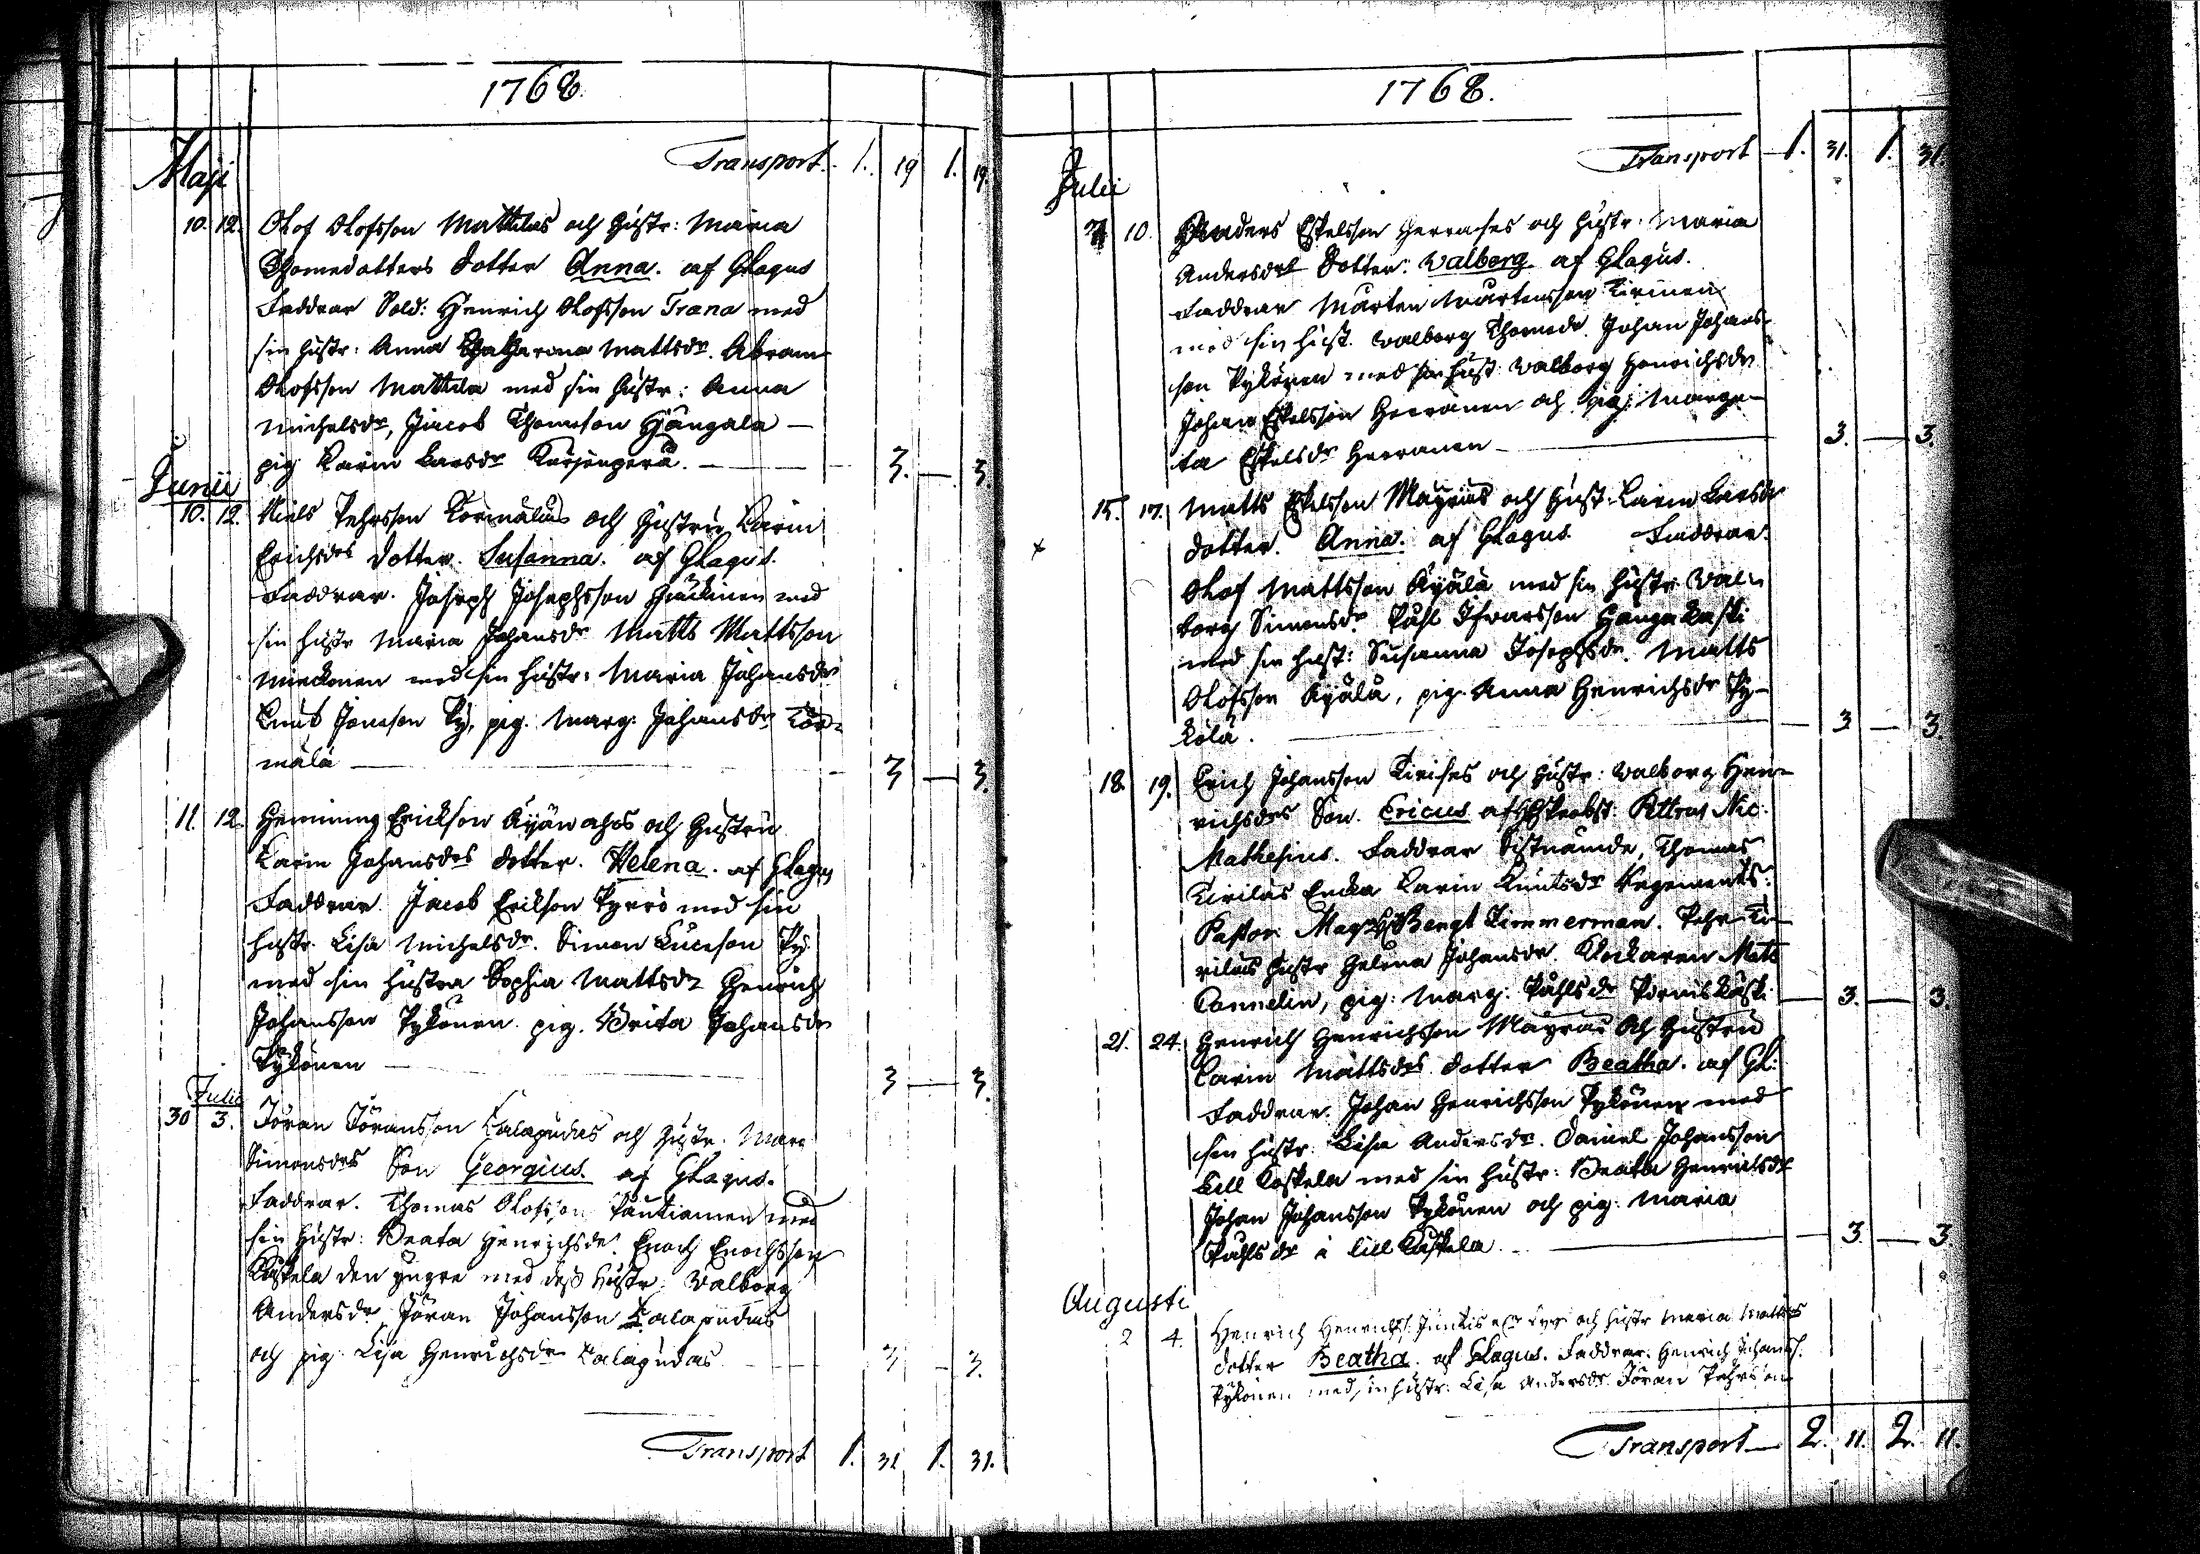 1768.
Transport. 1. 19 1. 19.
Maji
10. 12. Olof Olofsson Mattilas och hustr: Maria
Thomedotters dotter Anna. af Glagus
Faddrar Sold: Henrich Olofsson Trana med
sin hustr: Anna Catharina Mattsdr. Abram
Olofsson Mattila med sin hustr: Anna
Michelsdr, Jacob Thomeson Hångala
pig Karin Larsdr 3. 3
Junii
10. 12. Niels Pehrsson och hustru Karin
Erichsdrs dotter. Susanna. af Glagus.
Faddrar. Joseph Josephsson med
sin hustr Maria Johansdr Matts Mattsson
med sin hustr: Maria Johansdr
Knut Joneson Py, pig. Marg: Johansdr Kor-
mälä 3 3.
11. 12. Henning Erickson och hustru
Karin Johansdrs dotter. Helena. af Glagus
Faddrar. Jacob Erikson Pyrrö med sin
hustr. Lisa Michelsdr. Simon Py
med sin hustru Sophia Mattsdr Henrich
Johansson Pykönen pig. Brita Johansdr
Pykönen 3 3.
Julii
30 3. Jöran Jöransson Kalapudas och hustr. Mar
Simonsdrs Son Georgius. af Glagus.
Faddrar. Thomas Olofsson med
sin hustr: Beata Henrichsdr. Enoch Enochsson
Koskela den yngre med dess hustr: Valborg
Andersdr Jöran Johansson Kalapudas
och pig: Lisa Henrichsdr Kalapudas 3 3.
Transport 1. 31 1. 31.
1768.
Transport 1. 31. 1. 31
Julii
7 10. Anders Eskelsson och hustr. Maria
Andersdrs dotter: Valborg af Glagus.
Faddrar Mårten Mårtensson
med sin hust. Valborg Thomedr. Johan Johans-
son Pykönen med sin hust. Valborg Henrichsdr
Johan Eskelsson Herranen och pig: Marga-
ta Eskelsdr Herranen 3. 3.
15. 17. Matts Eskelsson Mäyräs och hust. Karin Larsdr
dotter. Anna. af Glagus. Faddrar.
Olof Mattsson Äyälä med sin hustr Val-
borg Simonsdr. Påhl Ifwarsson Hangaskoski
med sin hust: Susanna Josephsdr. Matts
Olofsson Äyälä, pig. Anna Henrichsdr Py-
kölä. 3 3
18. 19. Erich Johansson och hustr: Valborg Hen-
richsdrs Son. Ericus af Petrus Nic:
Mathesius. Faddrar Thomas
Kirilas Enka Karin Knutsdr Regements-
Pastor Magr Bengt Zimmerman. Pehr Ki-
rilas hustr Helena Johansdr. Klockaren Mats
Cannelin, pig: Marg: Påhlsdr 3. 3.
21. 24. Henrich Henrichsson Mäyrä och hustru
Karin Mattsdrs dotter Beatha. af Gl:
Faddrar. Johan Henrichsson Pykönen med
sin hustr. Lisa Andersdr. Daniel Johansson
Lill Koskela med sin hustr: Beata Henrichsdr
Johan Johansson Pykönen och pig: Maria
Påhlsdr å lill Koskela. 3. 3.
Augusti
2 4. Henrich och hustr Maria Mattsdrs
dotter Beatha. af Glagus. Faddrar. Henrich Johanss.
Pykönen med sin hustr. Lisa Andersdr. Jöran Pehrsson
Transport 2. 11. 2. 11.